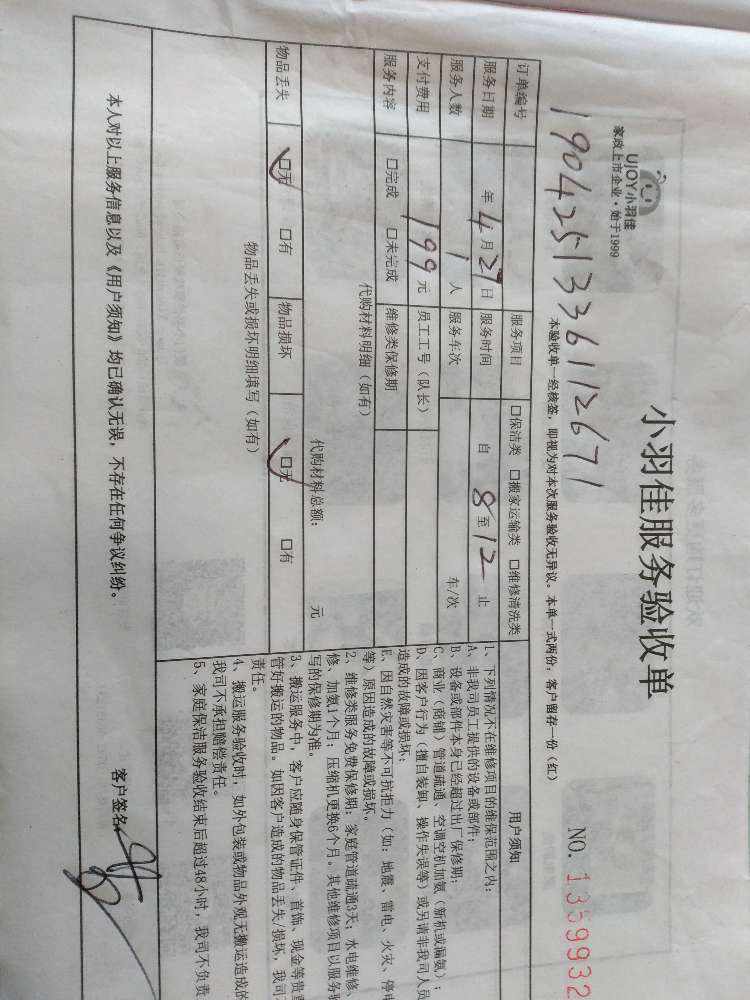 UJOY小羽佳
家政上市企业·始于1999
小羽佳服务验收单
本验收单一经核签，即视为对本次服务验收无异议。本单一式两份，客户留存一份（红）
NO. 1359932
1904251336112671
订单编号 服务项目 口保洁类 口搬家运输类 口维修清洗类
服务日期 年 4 月 27 日 服务时间 自 8 至 12 止
服务人数 1 人 服务车次 车/次
支付费用 199 元 员工工号（队长）
服务内容 口完成 口未完成 维修类保修期
代购材料明细（如有）
代购材料总额： 元
物品丢失 口无 口有 物品损坏 口无 口有
物品丢失或损坏明细填写（如有）
用户须知
1、下列情况不在维修项目的维保范围之内：
A、非我司员工提供的设备或部件；
B、设备或部件本身已经超过出厂保修期；
C、商业（商铺）管道疏通、空调空机加氨（新机或漏氨）；
D、因客户行为（擅自装卸、操作失误等）或另请非我司人员
造成的故障或损坏；
E、因自然灾害等不可抗拒力（如：地震、雷电、火灾、停电
等）原因造成的故障或损坏。
2、维修类服务免费保修期：家庭管道疏通3天；水电维修、
修、加氨1个月；压缩机更换6个月。其他维修项目以服务验
写的保修期为准。
3、搬运服务中，客户应随身保管证件、首饰、现金等贵重
管好搬运的物品。如因客户造成的物品丢失/损坏，我司
责任。
4、搬运服务验收时，如外包装或物品外观无搬运造成的
我司不承担赔偿责任。
5、家庭保洁服务验收结束后超过48小时，我司不负责
本人对以上服务信息以及《用户须知》均已确认无误，不存在任何争议纠纷。
客户签名：